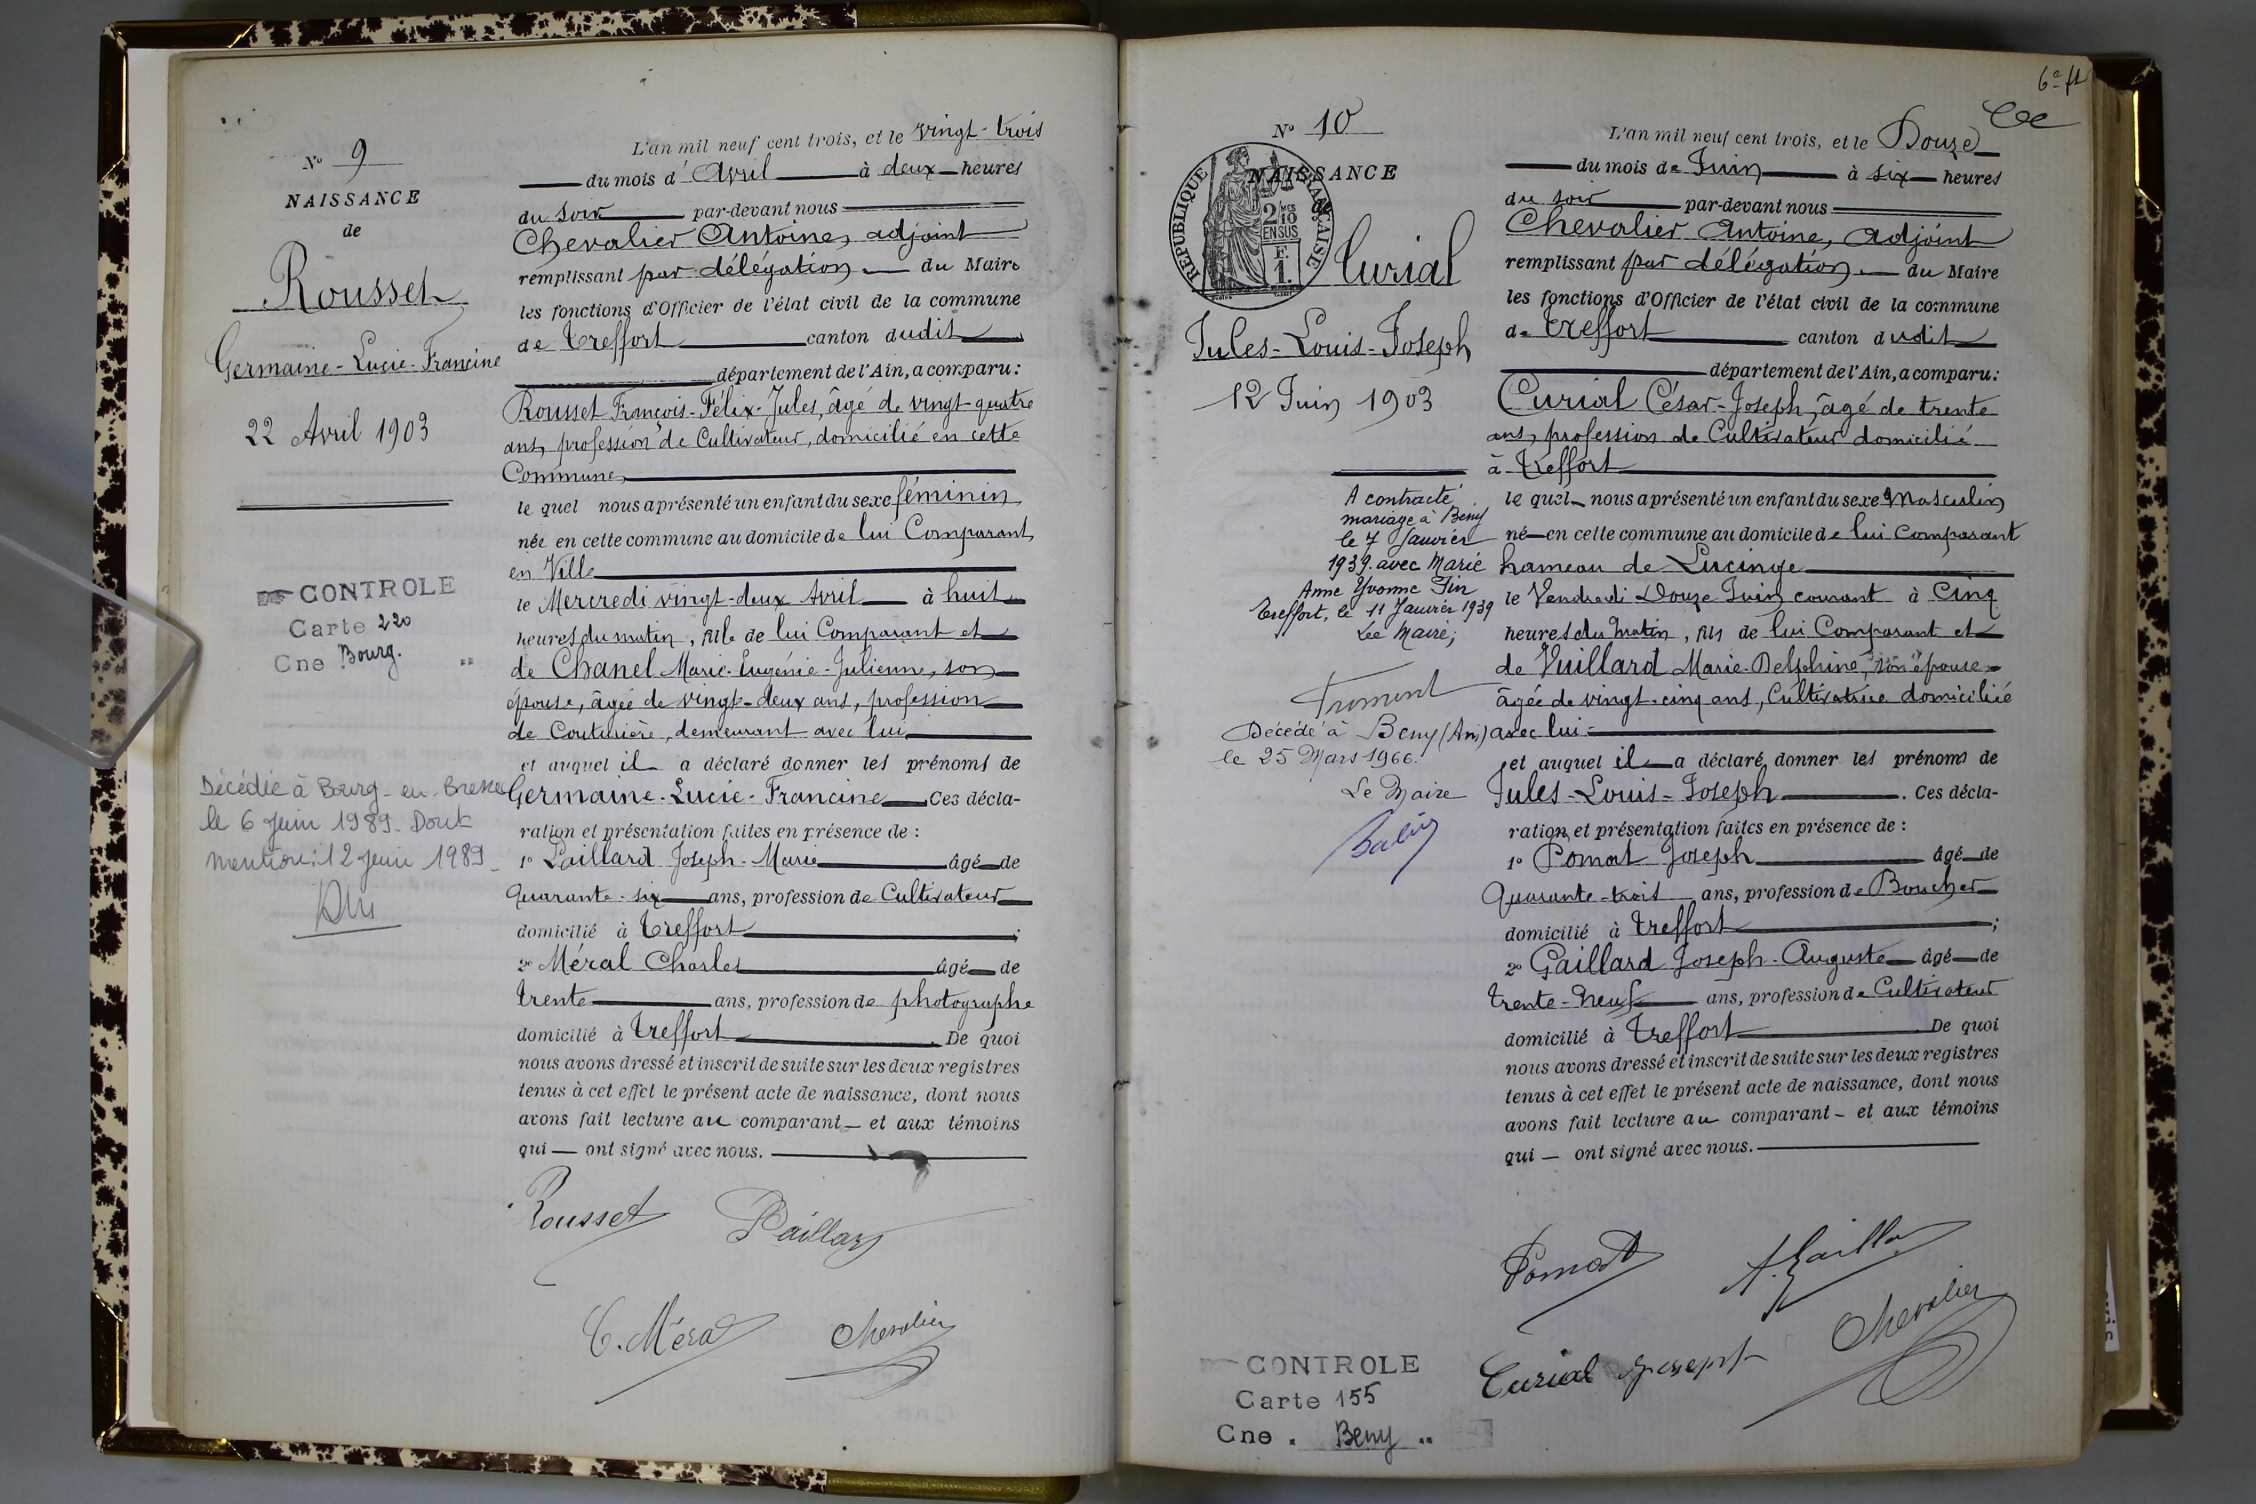 N° 9
NAISSANCE
de
Rousset
Germaine-Lucie-Francine
22 Avril 1903
CONTROLE
Carte 220
Cne Bourg.
Décédée à Bourg-en-Bresse
le 6 juin 1989. Dont
mention: 12 juin 1989
L'an mil neuf cent trois, et le vingt-trois
du mois d'Avril à deux heures
du soir par-devant nous
Chevalier Antoine, adjoint
remplissant par délégation du Maire
les fonctions d'Officier de l'état civil de la commune
de Treffort canton dudit
département de l'Ain, a comparu:
Rousset François-Félix-Jules, âgé de vingt-quatre
ans, profession de Cultivateur, domicilié en cette
Commune,
le quel nous a présenté un enfant du sexe féminin,
née en cette commune au domicile de lui Comparant,
en Ville
le Mercredi vingt-deux Avril à huit
heures du matin, fille de lui Comparant et
de Chanel Marie-Eugénie-Julienne, son
épouse, âgée de vingt-deux ans, profession
de Couturière, demeurant avec lui,
et auquel il a déclaré donner les prénoms de
Germaine-Lucie-Francine Ces décla-
ration et présentation faites en présence de:
1° Paillard Joseph-Marie âgé de
Quarante-six ans, profession de Cultivateur
domicilié à Treffort ;
2° Méral Charles âgé de
trente ans, profession de photographe
domicilié à Treffort. De quoi
nous avons dressé et inscrit de suite sur les deux registres
tenus à cet effet le présent acte de naissance, dont nous
avons fait lecture au comparant et aux témoins
qui ont signé avec nous.
Rousset Paillard
C. Méral Chevalier
6e ft
N° 10
NAISSANCE
de
REPUBLIQUE FRANÇAISE
2/10 MES
EN SUS
F.
1.
Curial
Jules-Louis-Joseph
12 Juin 1903
A contracté
mariage à Beny
le 7 Janvier
1939. avec Marie
Anne Yvonne Pin
Treffort, le 11 Janvier 1939
Le Maire,
Froment
Décédé à Beny (Ain)
le 25 Mars 1966.
Le Maire
CONTROLE
Carte 155
Cne. Beny
L'an mil neuf cent trois, et le Douze
du mois de Juin à six heures
du soir par-devant nous
Chevalier Antoine, adjoint
remplissant par délégation du Maire
les fonctions d'Officier de l'état civil de la commune
de Treffort canton dudit
département de l'Ain, a comparu:
Curial César-Joseph, âgé de trente
ans, profession de Cultivateur domicilié
à Treffort
le quel nous a présenté un enfant du sexe Masculin
né en cette commune au domicile de lui Comparant
hameau de Lucinge
le Vendredi Douze Juin courant à Cinq
heures du matin, fils de lui Comparant et
de Vuillard Marie-Delphine, son épouse
âgée de vingt-cinq ans, Cultivatrice domiciliée
avec lui
et auquel il a déclaré donner les prénoms de
Jules-Louis-Joseph. Ces décla-
ration et présentation faites en présence de:
1° Pomat Joseph âgé de
Quarante-trois ans, profession de Boucher
domicilié à Treffort ;
2° Gaillard Joseph-Auguste âgé de
trente-neuf ans, profession de Cultivateur
domicilié à Treffort De quoi
nous avons dressé et inscrit de suite sur les deux registres
tenus à cet effet le présent acte de naissance, dont nous
avons fait lecture au comparant et aux témoins
qui ont signé avec nous.
Pomat A. Gaillard
Curial Joseph Chevalier